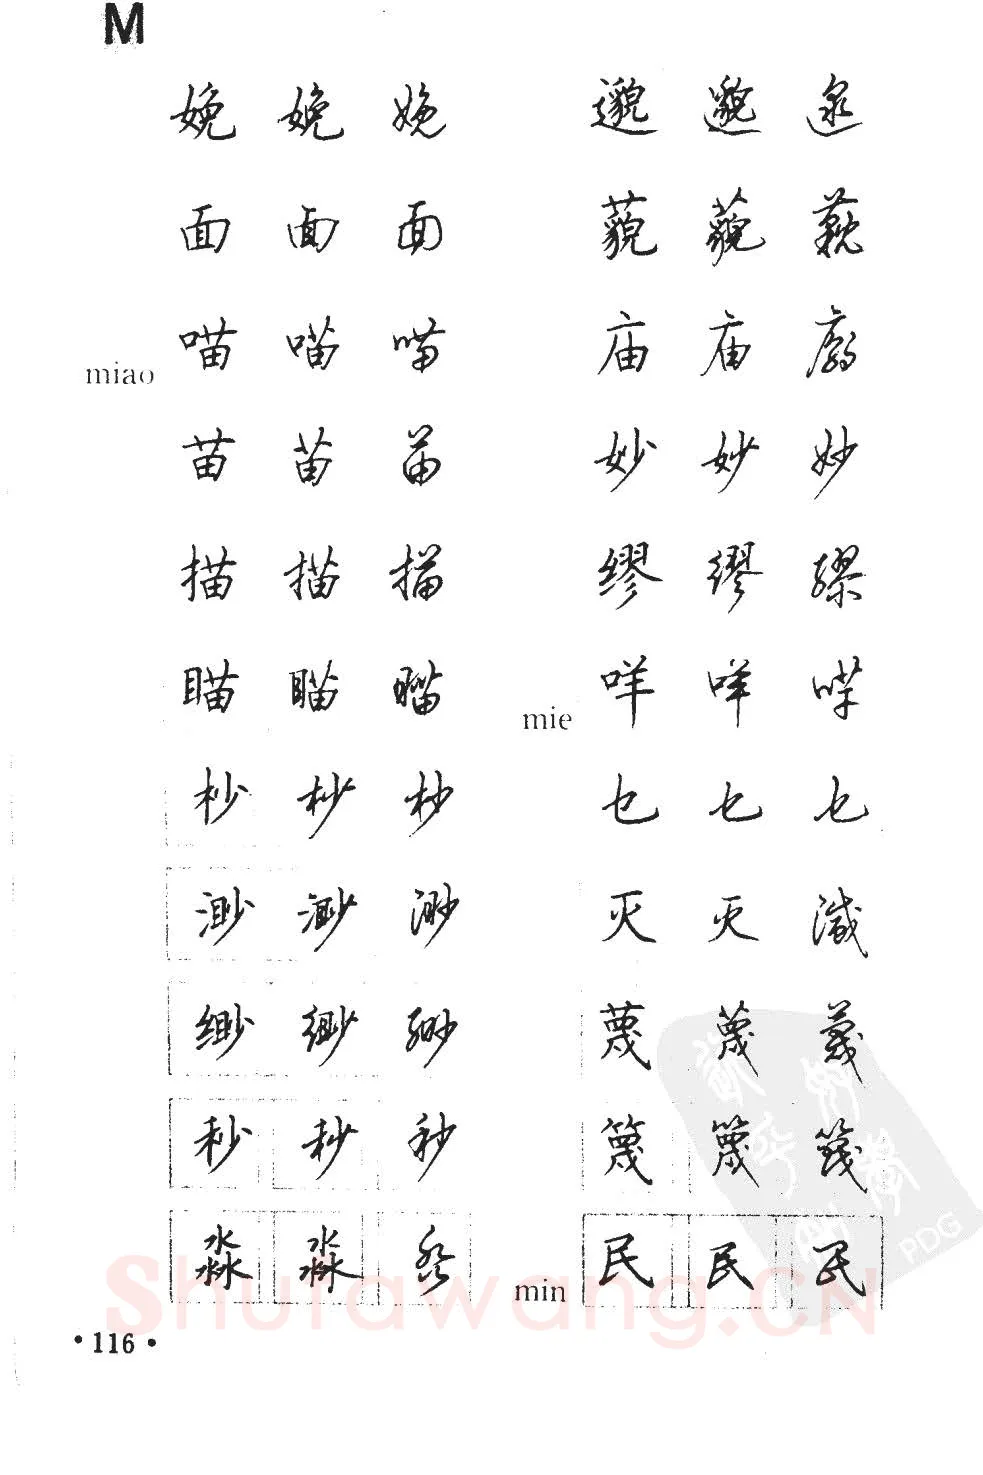 M
娩 娩 娩
面 面 面
miao 喵 喵 喵
苗 苗 苗
描 描 描
瞄 瞄 瞄
杪 杪 杪
渺 渺 渺
缈 缈 缈
秒 秒 秒
淼 淼 淼
邈 邈 邈
藐 藐 藐
庙 庙 庙
妙 妙 妙
缪 缪 缪
mie 咩 咩 咩
乜 乜 乜
灭 灭 滅
蔑 蔑 蔑
篾 篾 篾
min 民 民 民
·116·
Shufawang.CN
PDG